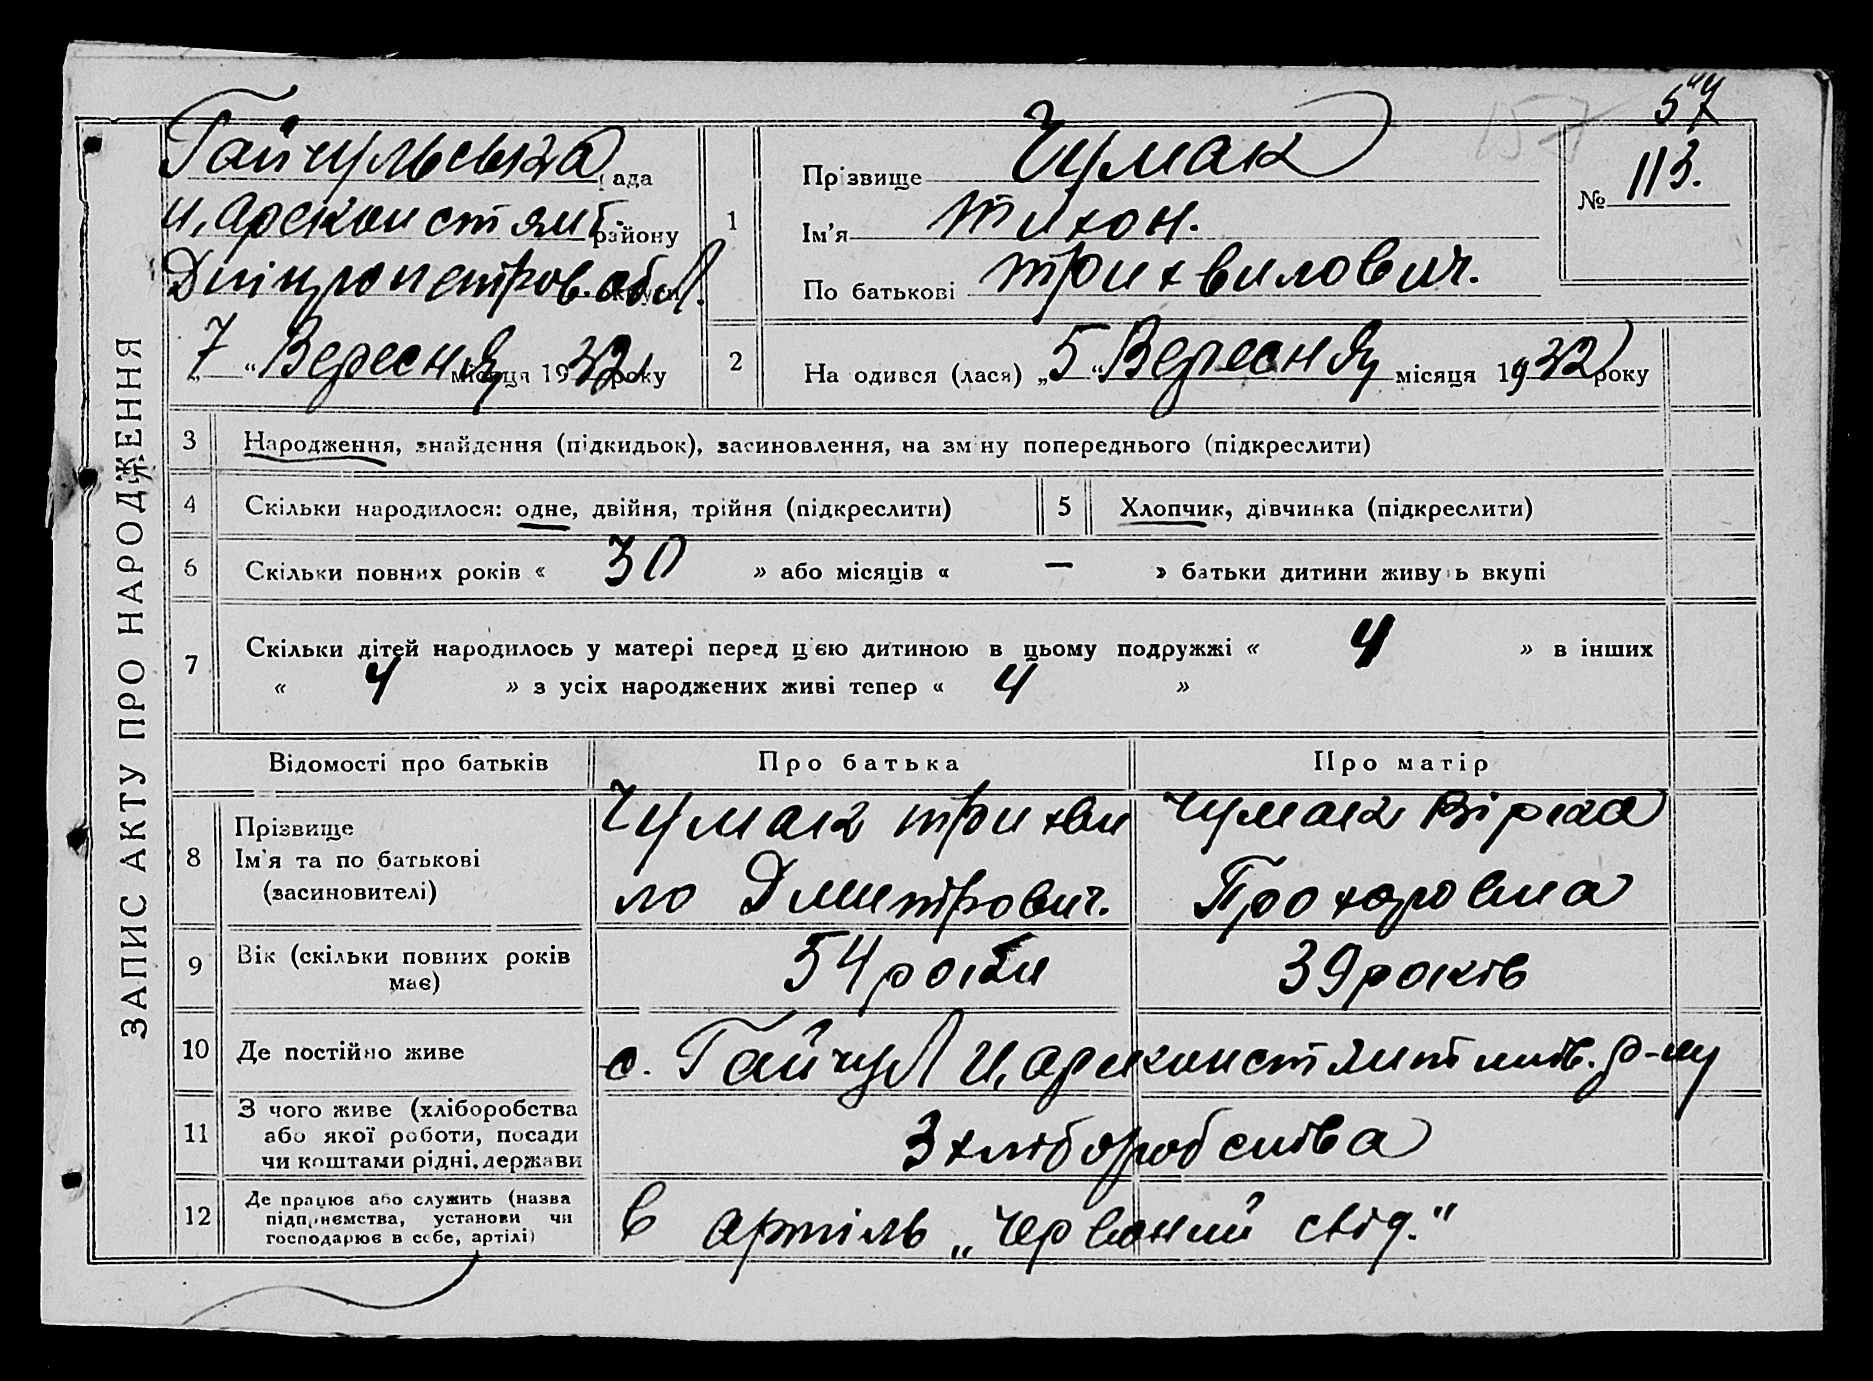 157 57
ЗАПИС АКТУ ПРО НАРОДЖЕННЯ
Гайчульська рада
н. Арекконстянт. району
Дніпропетров. обл.
„7“ Вересня місяця 1932 року
1 Прізвище Чумак
Ім'я Тихон.
По батькові Трихвилович.
№ 113.
2 На одився (лася) „5“ Вересня місяця 1932 року
3 Народження, знайдення (підкидьок), засиновлення, на зміну попереднього (підкреслити)
4 Скільки народилося: одне, двійня, трійня (підкреслити) 5 Хлопчик, дівчинка (підкреслити)
6 Скільки повних років « 30 » або місяців « — » батьки дитини живуть вкупі
7 Скільки дітей народилось у матері перед цією дитиною в цьому подружжі « 4 » в інших
« 4 » з усіх народжених живі тепер « 4 »
Відомості про батьків Про батька Про матір
8 Прізвище
Ім'я та по батькові
(засиновителі)
Чумак Трихви
ло Дмитрович.
Чумак Вірка
Прохоровна
9 Вік (скільки повних років
має)
54 роки 39 років
10 Де постійно живе с. Гайчул р-ну
11 З чого живе (хліборобства
або якої роботи, посади
чи коштами рідні, держави
З хліборобства
12 Де працює або служить (назва
підприємства, установи чи
господарює в себе, артілі)
в артіль „Червоний схід."